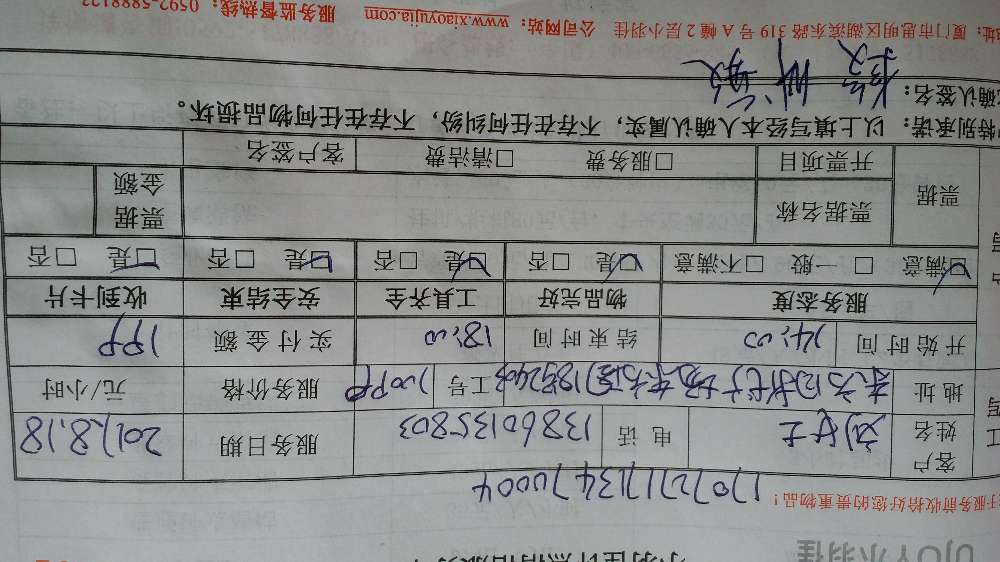 UJOY小羽佳
于服务前收拾好您的贵重物品！
1707217113470004
客户姓名 刘女士 电话 13860135803 服务日期 2017.8.18
地址 工号 服务价格 元/小时
开始时间 14:00 结束时间 18:00 实付金额 199
服务态度 物品完好 工具齐全 安全结束 收到卡片
☑满意 □一般 □不满意 ☑是 □否 ☑是 □否 ☑是 □否 ☑是 □否
票据 票据名称 票据金额
开票项目 □服务费 □清洁费 客户签名
特别承诺：以上填写经本人确认属实，不存在任何纠纷，不存在任何物品损坏。
确认签名：
址：厦门市思明区湖滨东路319号A幢2层小羽佳 公司网站：www.xiaoyujia.com 服务监督热线：0592-5888122